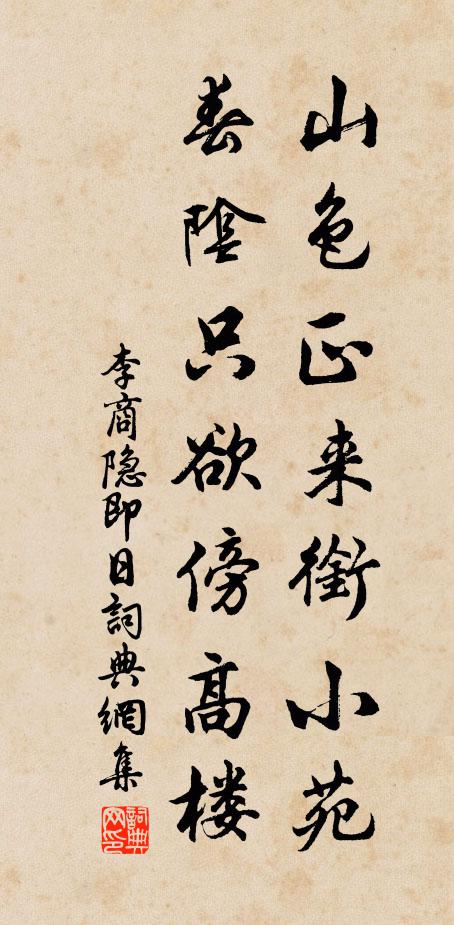 山色正来銜小苑
春陰只欲傍高楼
李商隐即日詞典網集
詞典网印